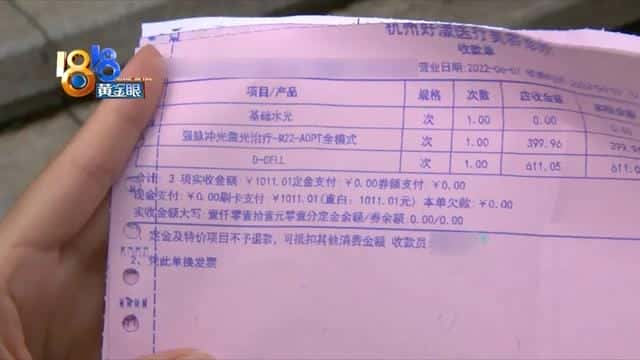 1818
黄金眼
杭州好漾医疗美容诊所
收款单
营业日期:2022-06-07
项目/产品 规格 次数 应收金额
基础水光 次 1.00 0.00
强脉冲光激光治疗-M22-AOPT全模式 次 1.00 399.96 399.96
D-CELL 次 1.00 611.05 611.05
合计: 3 项实收金额 ¥1011.01定金支付: ¥0.00券额支付 ¥0.00
现金支付: ¥0.00刷卡支付 ¥1011.01(直白: 1011.01元) 本单欠款: ¥0.00
实收金额大写: 壹仟零壹拾壹元零壹分定金余额/券余额: 0.00/0.00
1、定金及特价项目不予退款, 可抵扣其他消费金额 收款员
2、凭此单换发票